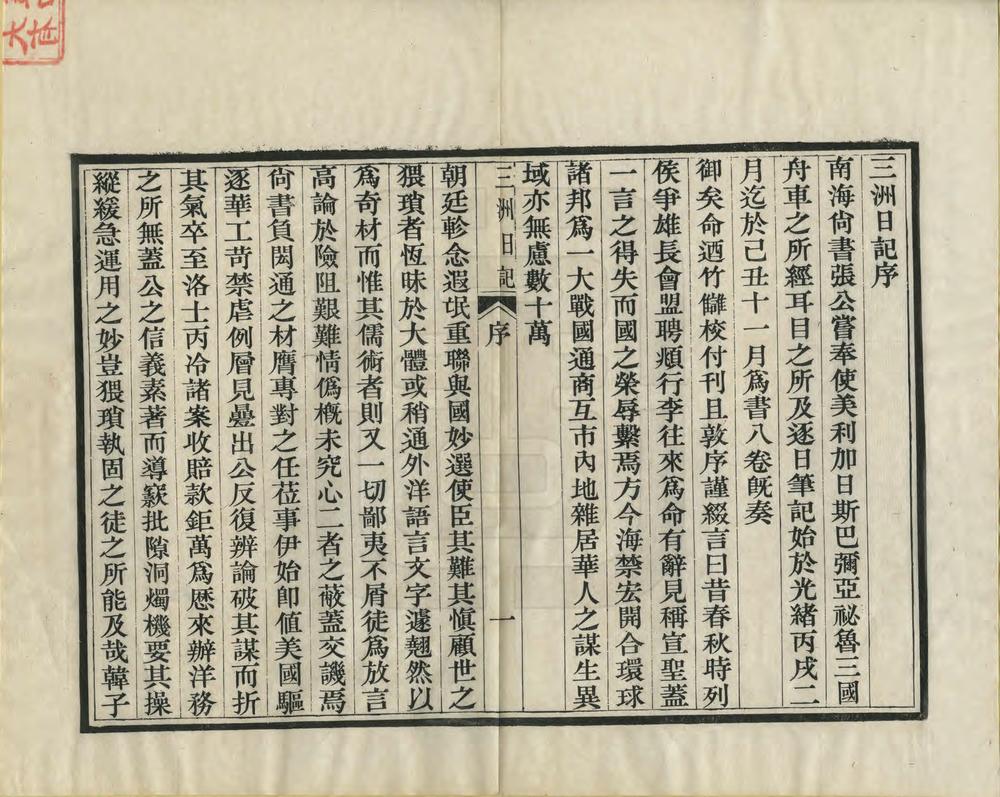 三洲日記序
南海尙書張公嘗奉使美利加日斯巴彌亞祕魯三國
舟車之所經耳目之所及逐日筆記始於光緒丙戌二
月迄於己丑十一月爲書八卷旣奏
御矣命迺竹讎校付刊且敦序謹綴言曰昔春秋時列
侯爭雄長會盟聘頫行李往來爲命有辭見稱宣聖蓋
一言之得失而國之榮辱繫焉方今海禁宏開合環球
諸邦爲一大戰國通商互市內地雜居華人之謀生異
域亦無慮數十萬
三洲日記 序 一
朝廷軫念遐氓重聯與國妙選使臣其難其愼顧世之
猥瑣者恆昧於大體或稍通外洋語言文字遽翹然以
爲奇材而惟其儒術者則又一切鄙夷不屑徒爲放言
高論於險阻艱難情僞槪未究心二者之蔽蓋交譏焉
尙書負閎通之材膺專對之任莅事伊始卽値美國驅
逐華工苛禁虐例層見曡出公反復辨論破其謀而折
其氣卒至洛士丙冷諸案收賠款鉅萬爲歷來辦洋務
之所無蓋公之信義素著而導窾批隙洞燭機要其操
縱緩急運用之妙豈猥瑣執固之徒之所能及哉韓子